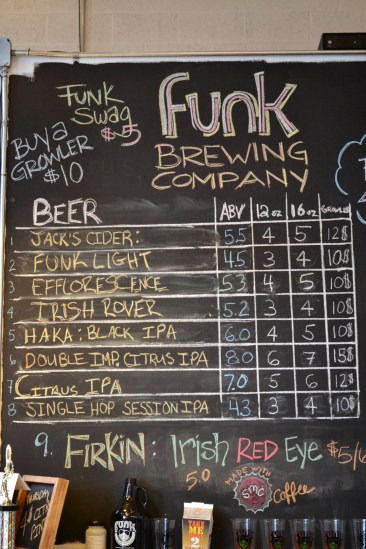 FUNK
SWAG
$5
BUY a
GROWLER
$10
funk
BREWING
COMPANY
BEER ABV 12 oz 16 oz GROWLER
1 JACK'S CIDER: 5.5 4 5 12$
2 FUNK LIGHT 4.5 3 4 10$
3 EFFLORESCENCE 5.3 4 5 10$
4 IRISH ROVER 5.2 3 4 10$
5 HAKA: BLACK IPA 6.0 4 5 10$
6 DOUBLE IMP. CITRUS IPA 8.0 6 7 15$
7 CITRUS IPA 7.0 5 6 12$
8 SINGLE HOP SESSION IPA 4.3 3 4 10$
9. FIRKIN: Irish RED Eye $5/6
5.0
MADE WITH
SMC
Coffee
FUNK
TAKE
ME
2